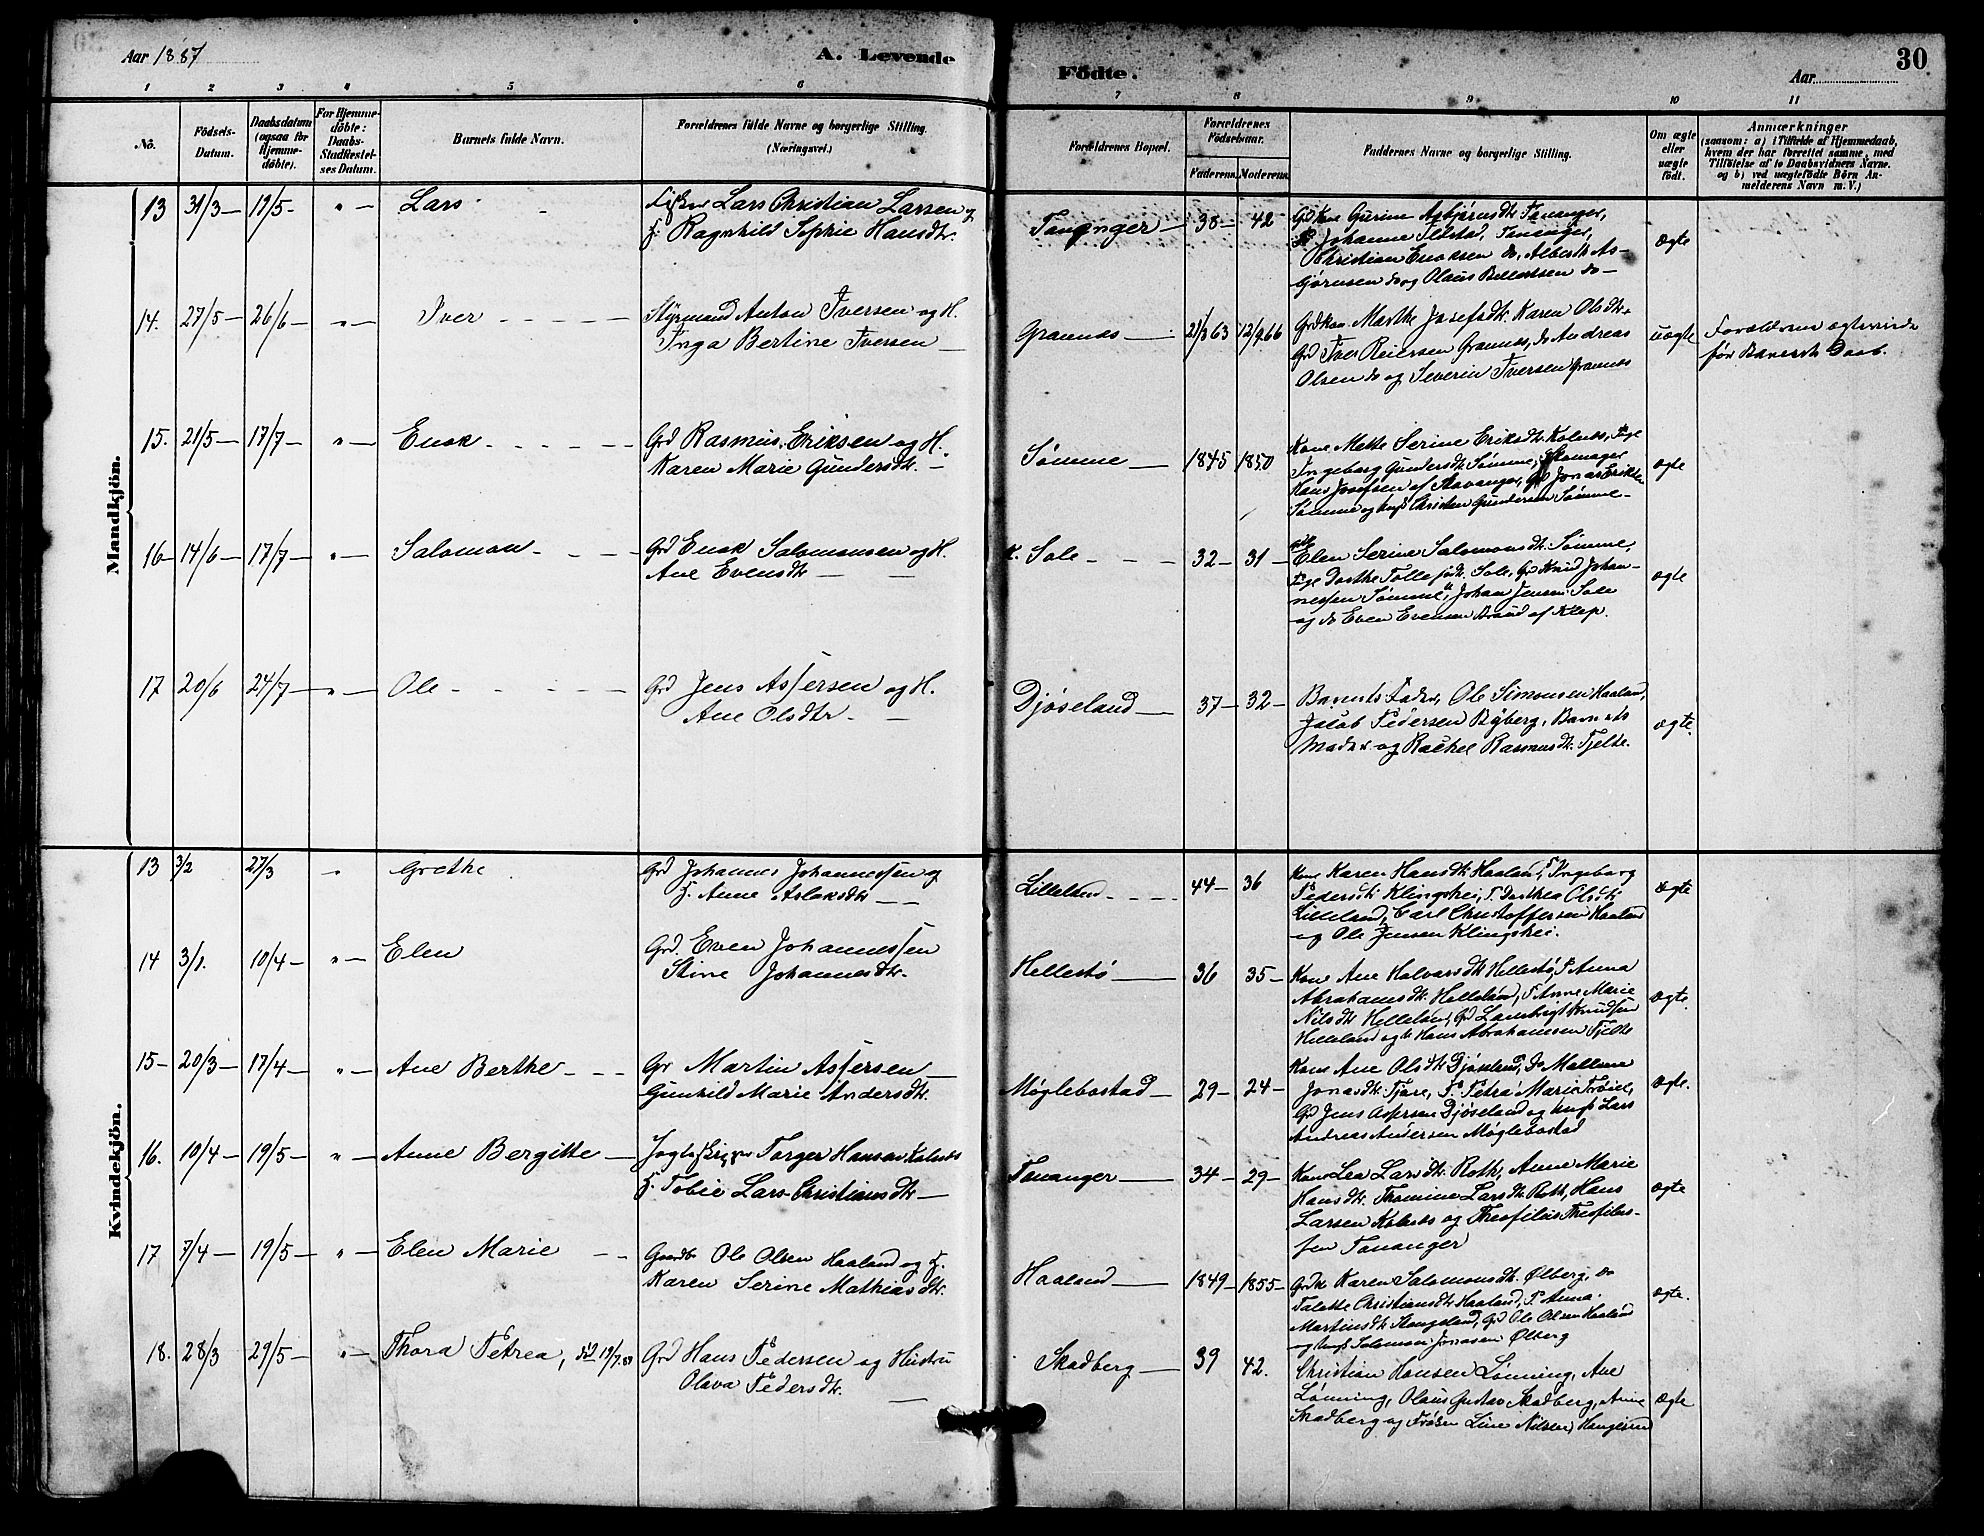 Aar 1887
A. Levende
Födte.
Aar
30
1 2 3 4 5 6 7 8 9 10 11
No.
Födsels-Datum.
Daabsdatum (ogsaa for Hjemme-döbte).
For Hjemme-döbte: Daabs-Stadfæstelses Datum.
Barnets fulde Navn.
Forældrenes fulde Navne og borgerlige Stilling. (Næringsvei.)
Forældrenes Bopæl.
Forældrenes Födselsaar.
Faderens. Moderens.
Faddernes Navne og borgerlige Stilling.
Om ægte eller uægte födt.
Anmærkninger
(saasom: a) i Tilfælde af Hjemmedaab,
hvem der har forrettet samme, med
Tilföielse af to Daabsvidners Navne.
og b) ved uægtefödte Börn An-
melderens Navn m. V.)
Mandkjön.
13 31/3 — 19/5 - " — Lars
Fisker Lars Christian Larsen og
H. Ragnhild Sophie Hansdtr.
Tananger — 38 — 42
Gdkone Gurine Asbjørnsdtr. Tananger,
Johanne Tananger,
Christian Enoksen do, Albert As-
bjørnsen do og Olaus Bertelsen do —
Ægte
14. 27/5 — 26/6 — " — Iver
Styrmand Anton Iversen og H.
Inga Bertine Iversen —
Grannes — 21/3 63 12/9 66
Grdkon. Marthe Josefsdtr. Karen Olsdtr.
Grd Iver Reiersen Grannes, do Andreas
Olsen do og Severin Iversen Grannes
uægte
Forældrene ægteviede
før Barnets Daab.
15. 21/5 — 17/7 — " — Enok
Grd Rasmus Eriksen og H.
Karen Marie Gundersdtr. —
Sømme — 1845 1850
Kone Mette Serine Eriksdtr. Kolnes, Pige
Ingeborg Gundersdtr. Sømme, Skomager
Hans Josefsen af Stavanger, Grd Jonas Eriksen
Sømme og Ungk Christen Gundersen Sømme —
ægte
16 — 14/6 — 17/7 — " — Salomon
Grd Enok Salomonsen og H.
Ane Evensdtr —
Sole — 32 — 31 —
Elen Serine Salomonsdtr. Sømme,
Pige Dorthe Tollefsdtr. Sole, Grd Knud Johan-
nessen Sømme, Johan Jensen Sole
og do Even Evensen Braud af Klep.
ægte
17 20/6 24/7 — " — Ole
Grd Jens Assersen og H.
Ane Olsdtr. —
Djøseland — 37 — 32 —
Barnets Fader, Ole Simonsen Haaland,
Jakob Pedersen Ryberg, Barnets
Moder og Rachel Rasmusdtr. Tjelte.
ægte.
Kvindekjön.
13 3/2 27/3 " Grethe
Grd Johannes Johannessen og
H. Anne Aslaksdtr — —
Lilleland — 44 — 36
Kone Karen Hansdtr. Haaland, P. Ingeborg
Pedersdtr. Klingshei, P. Dorthea Olsdtr.
Lilleland, Carl Christoffersen Haaland
og Ole Jensen Klingshei.
ægte
14 3/1. 10/4 — " — Elen
Grd. Even Johannessen
Stine Johannesdtr.
Hellestø — 36 35 —
Kone Ane Halvarsdtr. Hellestø, P. Anna
Abrahamsdtr. Helleland, P. Anne Marie
Nilsdtr. Helleland, Grd Lambrigt Knudsen
Helleland og do Hans Abrahamsen Tjelte
ægte.
15 — 20/3 — 17/4 — " — Ane Berthe
Gr Martin Assersen —
Gunhild Marie Andersdtr.
Møglebostad — 29 — 24 —
Kone Ane Olsdtr. Djøseland, do Mallene
Jonasdtr. Tjore, P. Petra Marie
Grd Jens Assersen Djøseland og Ungk Lars
Andreas Andersen Møglebostad
ægte.
16. 10/4 — 19/5 — " — Anne Bergitte
Jagtskipper Torger Hansen Kolnes
H. Tobie Lars-Christiansdtr —
Tananger — 34 — 29 —
Kone Lea Larsdtr. Roth, Anne Marie
Hansdtr. Thomine Larsdtr. Roth, Hans
Larsen Kolnes og Theofilus Theofilus-
sen Tananger
ægte
17 7/4 — 19/5 — " — Elen Marie — —
Ole Olsen Haaland og H.
Karen Serine Mathiasdtr.
Haaland — 1849 — 1855 —
Grdk Karen Salomonsdtr. Ølberg, do
Talette Christiansdtr. Haaland, P. Anna
Martinsdtr. Stangeland, Grd Ole Olsen Haaland
og Ungk Salomon Jonassen Ølberg
ægte.
18. 28/3 29/5 — " — Thora Petrea,
Grd Hans Pedersen og Hustru
Olava Pedersdtr.
Skadberg — 39 42.
Christian Hansen Lønning, Ane
Lønning, Olaus Gustav Skadberg, Anne
Skadberg og Frøken Line Nilsen,
Ægte